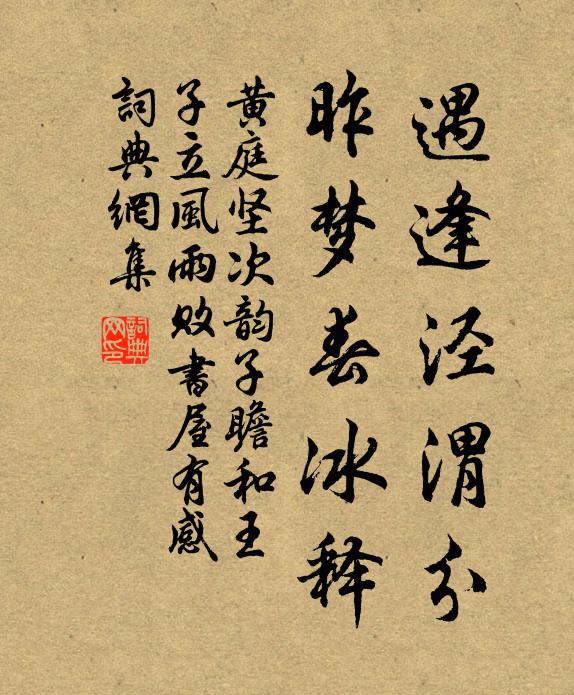 遇逢泾渭分
昨梦春冰释
黄庭坚次韵子瞻和王
子立風雨败書屋有感
詞典網集
詞典
网印